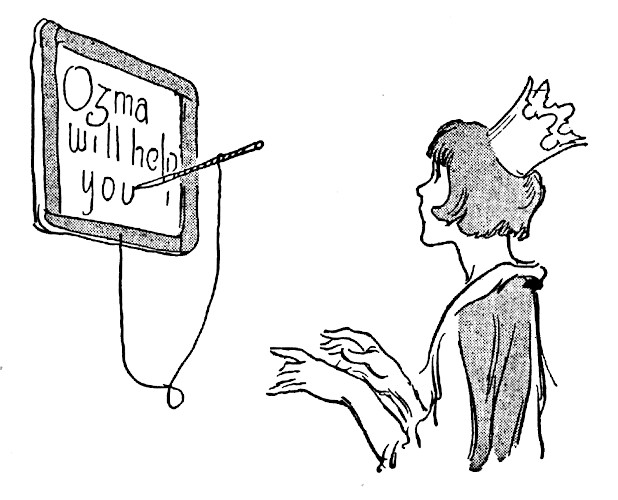 Ozma
will help
you